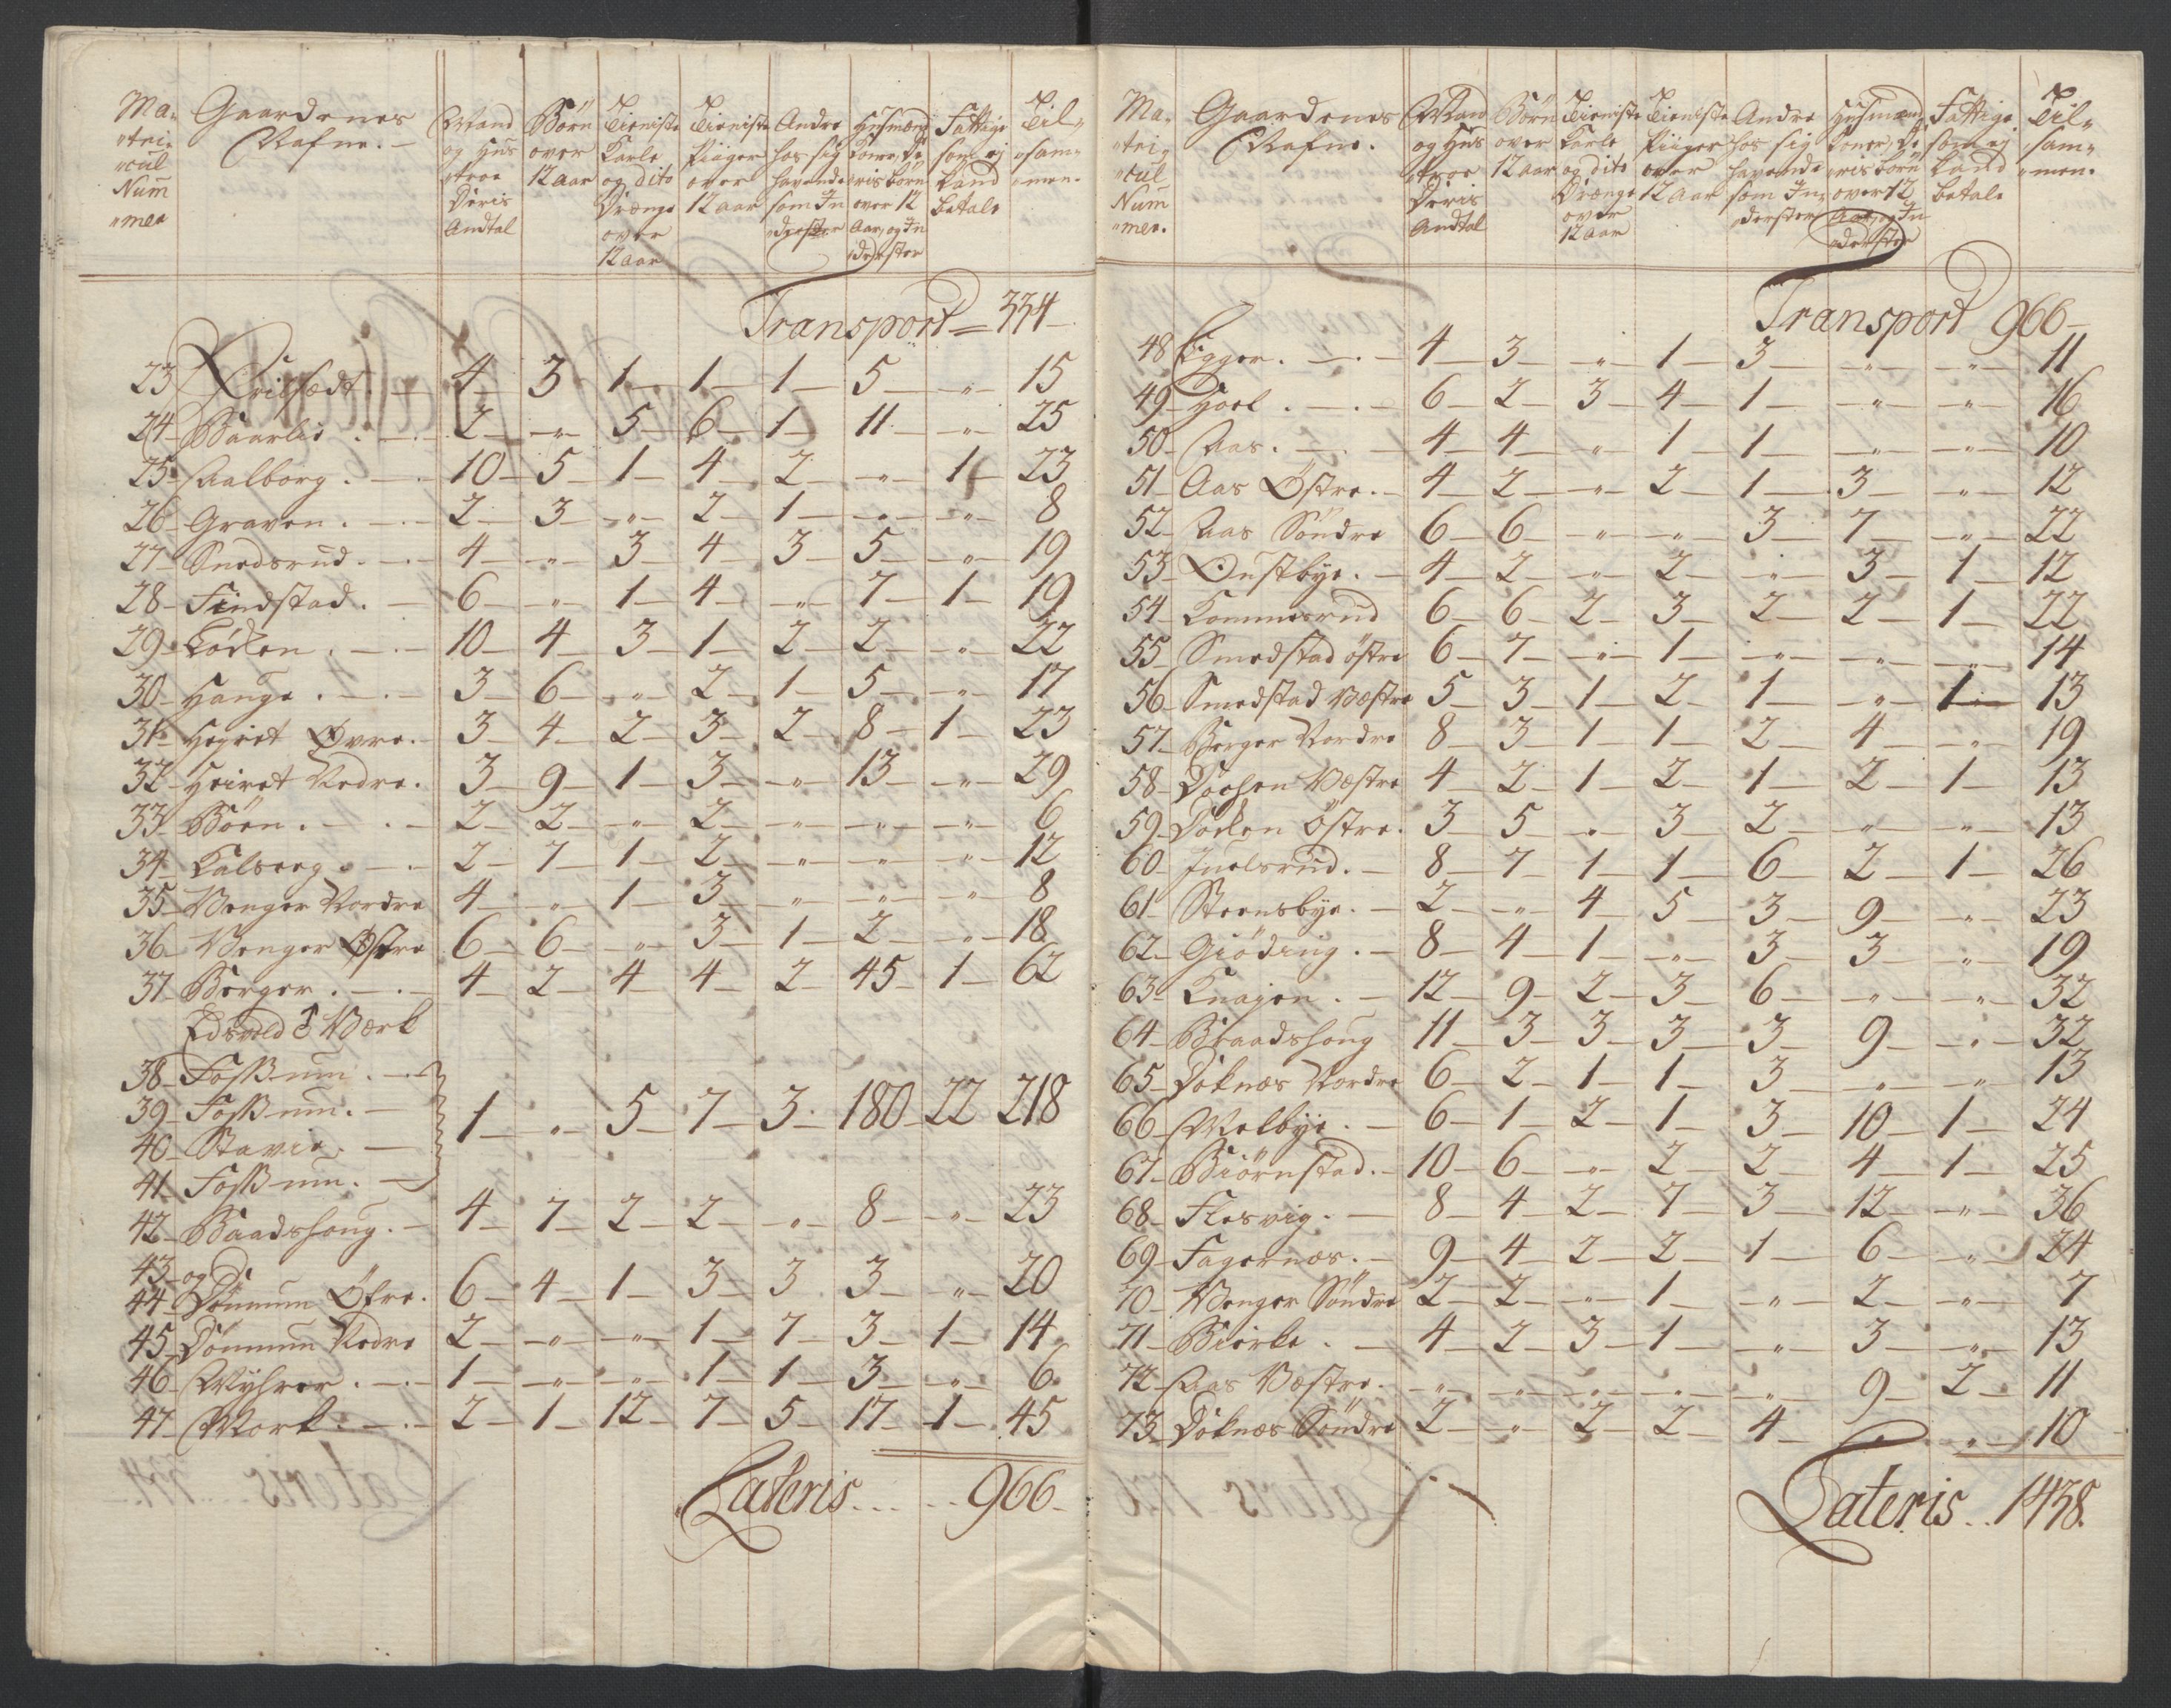 Ma-
"tri-
"cul
Num
"mer
Gaardenes
Nafne. -
Mand
og Hus
"troe
Deris
Andtal
Börn
over
12 aar
Tieniste
Karle
og dito
Drænge
over
12 aar
Tieniste
Piiger
over
12 aar
Andre
hos sig
havende
som In
derster
Husmænd
Koner, De
ris börn
over 12
Aar, og In
derster
Fattige
som ej
kand
betale
Til-
"sam-
"men.
Transport = 334
23 Eriksædt. 4 3 1 1 1 5 " 15
24 Baarlie. 2 " 5 6 1 11 " 25
25 Aalborg. 10 5 1 4 2 " 1 23
26 Graven. 2 3 " 2 1 " " 8
27 Snedsrud. 4 " 3 4 3 5 " 19
28 Findstad. 6 " 1 4 " 7 1 19
29 Løken. 10 4 3 1 2 2 " 22
30 Hauge. 3 6 " 2 1 5 " 17
31 Hegret Øvre. 3 4 2 3 2 8 1 23
32 Heiret Nedre. 3 9 1 3 " 13 " 29
33 Börn. 2 2 " 2 " " " 6
34 Kalserg. 2 7 1 2 " " " 12
35 Wenger Nordre 4 " 1 3 " " " 8
36 Wenger Østre 6 6 " 3 1 2 " 18
37 Berger. 4 2 4 4 2 45 1 62
Edsvold ♂ Værk
38 Foss-um.
39 Foss-um. 1 " 5 7 3 180 22 218
40 Stavie.
41 Foss-um.
42 Baadshoug. 4 7 2 2 " 8 " 23
43 og
44 Dönnum Öfre. 6 4 1 3 3 3 " 20
45 Dönnum Nedre 2 " " 1 7 3 1 14
46 Myhrer. 1 " " 1 1 3 " 6
47 Mork. 2 1 12 7 5 17 1 45
Lateris 966
Ma-
"tri-
"cul
Num
"mer.
Gaardenes
Nafne.
Mand
og Hus
"troe
Deris
Andtal
Börn
over
12 aar
Tieniste
Karle
og dito
Drænge
over
12 aar
Tieniste
Piiger
over
12 aar
Andre
hos sig
havende
som In
derster
Husmænd
Koner, De
ris börn
over 12
Aar, og In
derster
Fattige
som ej
kand
betale
Til-
"sam-
"men.
Transport 966
48 Egger. 4 3 " 1 3 " " 11
49 Hoel. 6 2 3 4 1 " " 16
50 Aas. 4 4 " 1 1 " " 10
51 Aas Östre. 4 2 " 2 1 3 " 12
52 Aas Söndre 6 6 " " 3 7 " 22
53 Ønstbye. 4 2 " 2 " 3 1 12
54 Kommesrud 6 6 2 3 2 2 1 22
55 Smedstad östre 6 7 " 1 " " " 14
56 Smedstad Væstre 5 3 1 2 1 " 1 13
57 Berger Nordre 8 3 1 1 2 4 " 19
58 Döchen Væstre 4 2 1 2 1 2 1 13
59 Döcken Östre. 3 5 " 3 2 " " 13
60 Juelsrud. 8 7 1 1 6 2 1 26
61 Steensbye. 2 " 4 5 3 9 " 23
62 Giöding. 8 4 1 " 3 3 " 19
63 Knajen. 12 9 2 3 6 " " 32
64 Braadshoug 11 3 3 3 3 9 " 32
65 Doknæs Nordre 6 2 1 1 3 " " 13
66 Melbye. 6 1 2 1 3 10 1 24
67 Biörnstad. 10 6 " 2 2 4 1 25
68 Flesvig. 8 4 2 7 3 12 " 36
69 Fagernæs. 9 4 2 2 1 6 " 24
70 Wenger Söndre 2 2 " 1 " 2 " 7
71 Bierke. 4 2 3 1 " 3 " 13
72 Aas Væstre. " " " " " 9 2 11
73 Doknæs Söndre 2 " 2 2 4 " " 10
Lateris 1438.